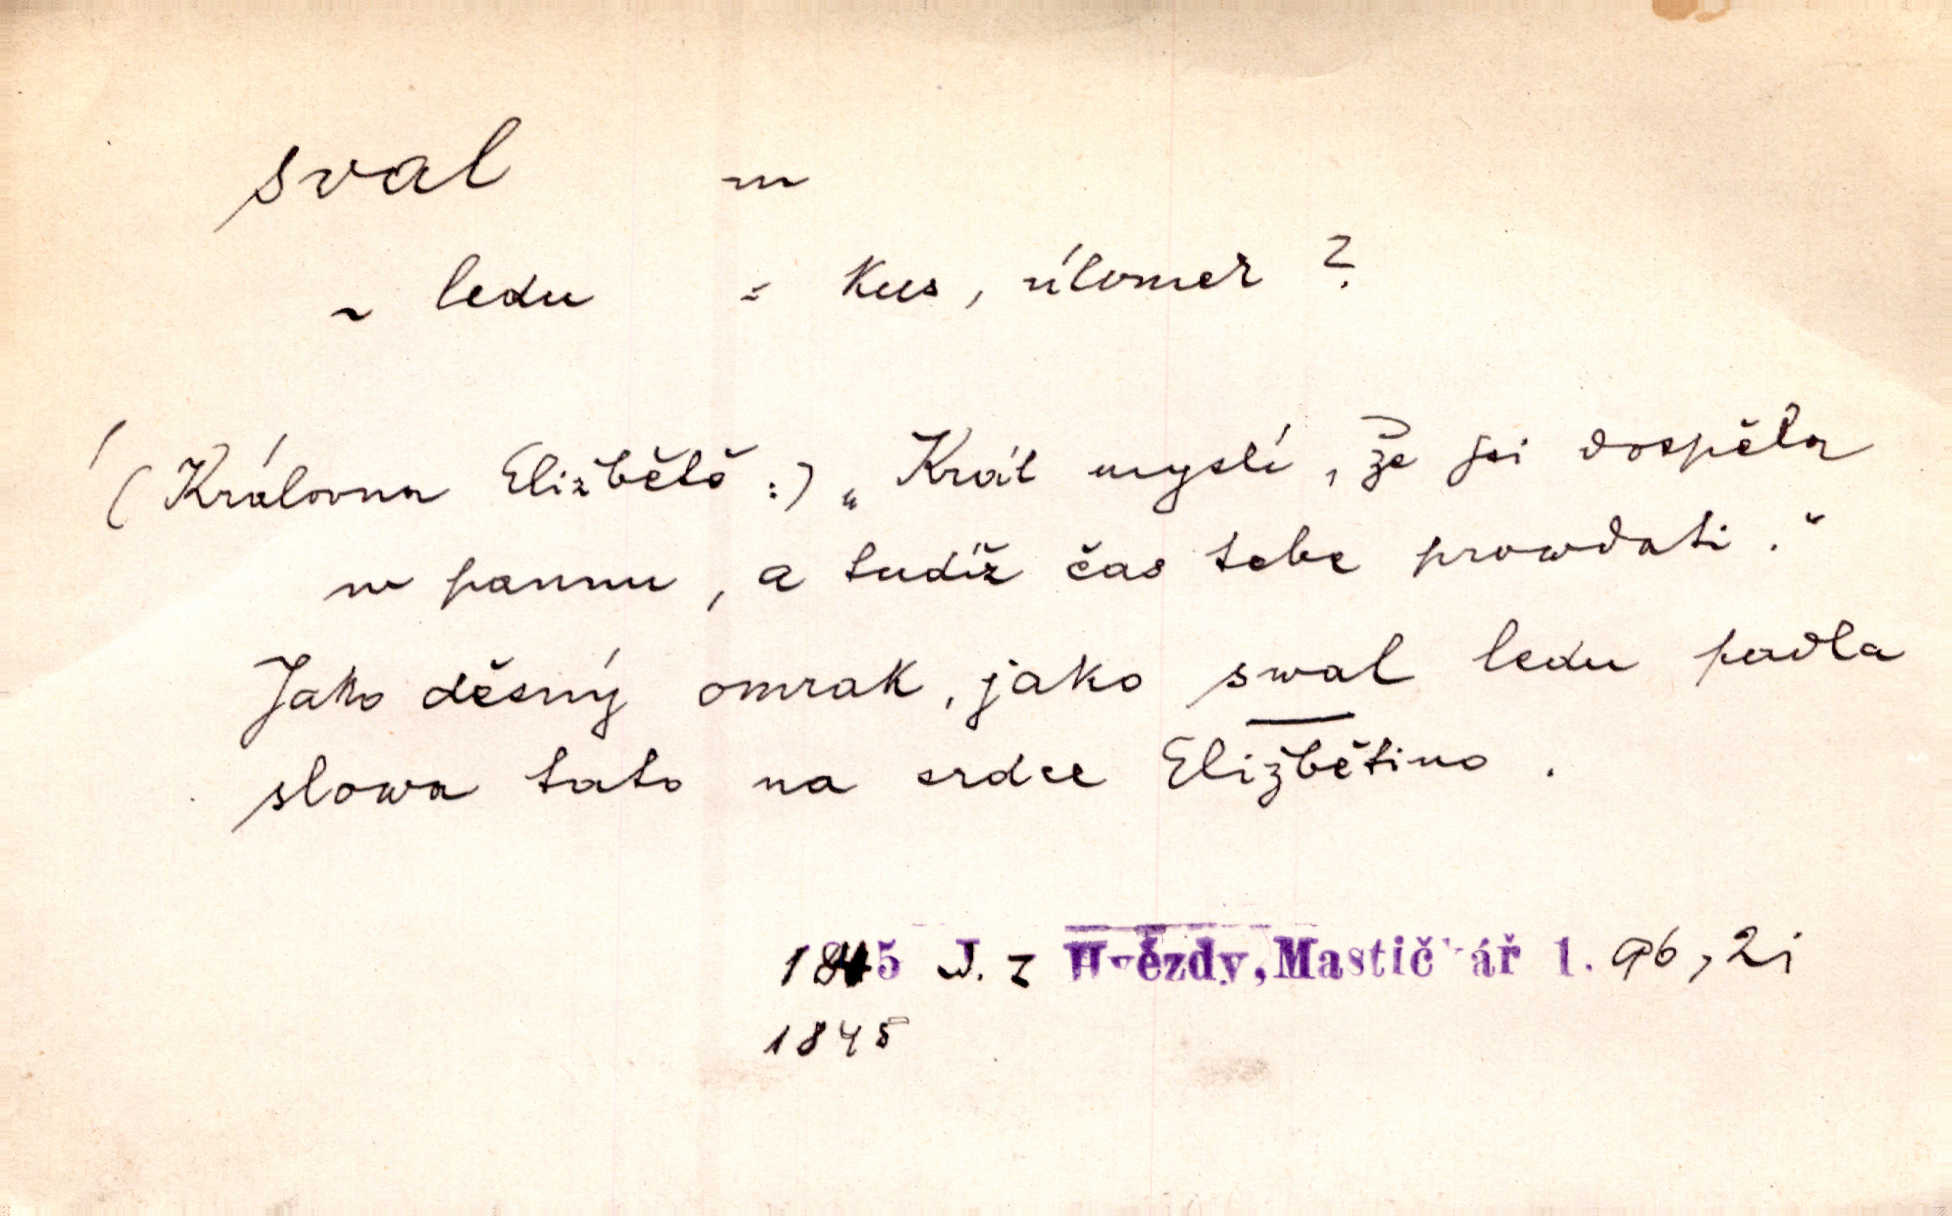 sval m
~ ledu = kus, úlomek ?
(Královna Eližbětě :) „Král myslí, že jsi dospěla
w pannu, a tudíž čas tebe prowdati.“
Jako děsný omrak, jako swal ledu padla
slowa tato na srdce Eližbětino.
1845 J. z Hvězdy, Mastičkář 1. 96, 2i
1845